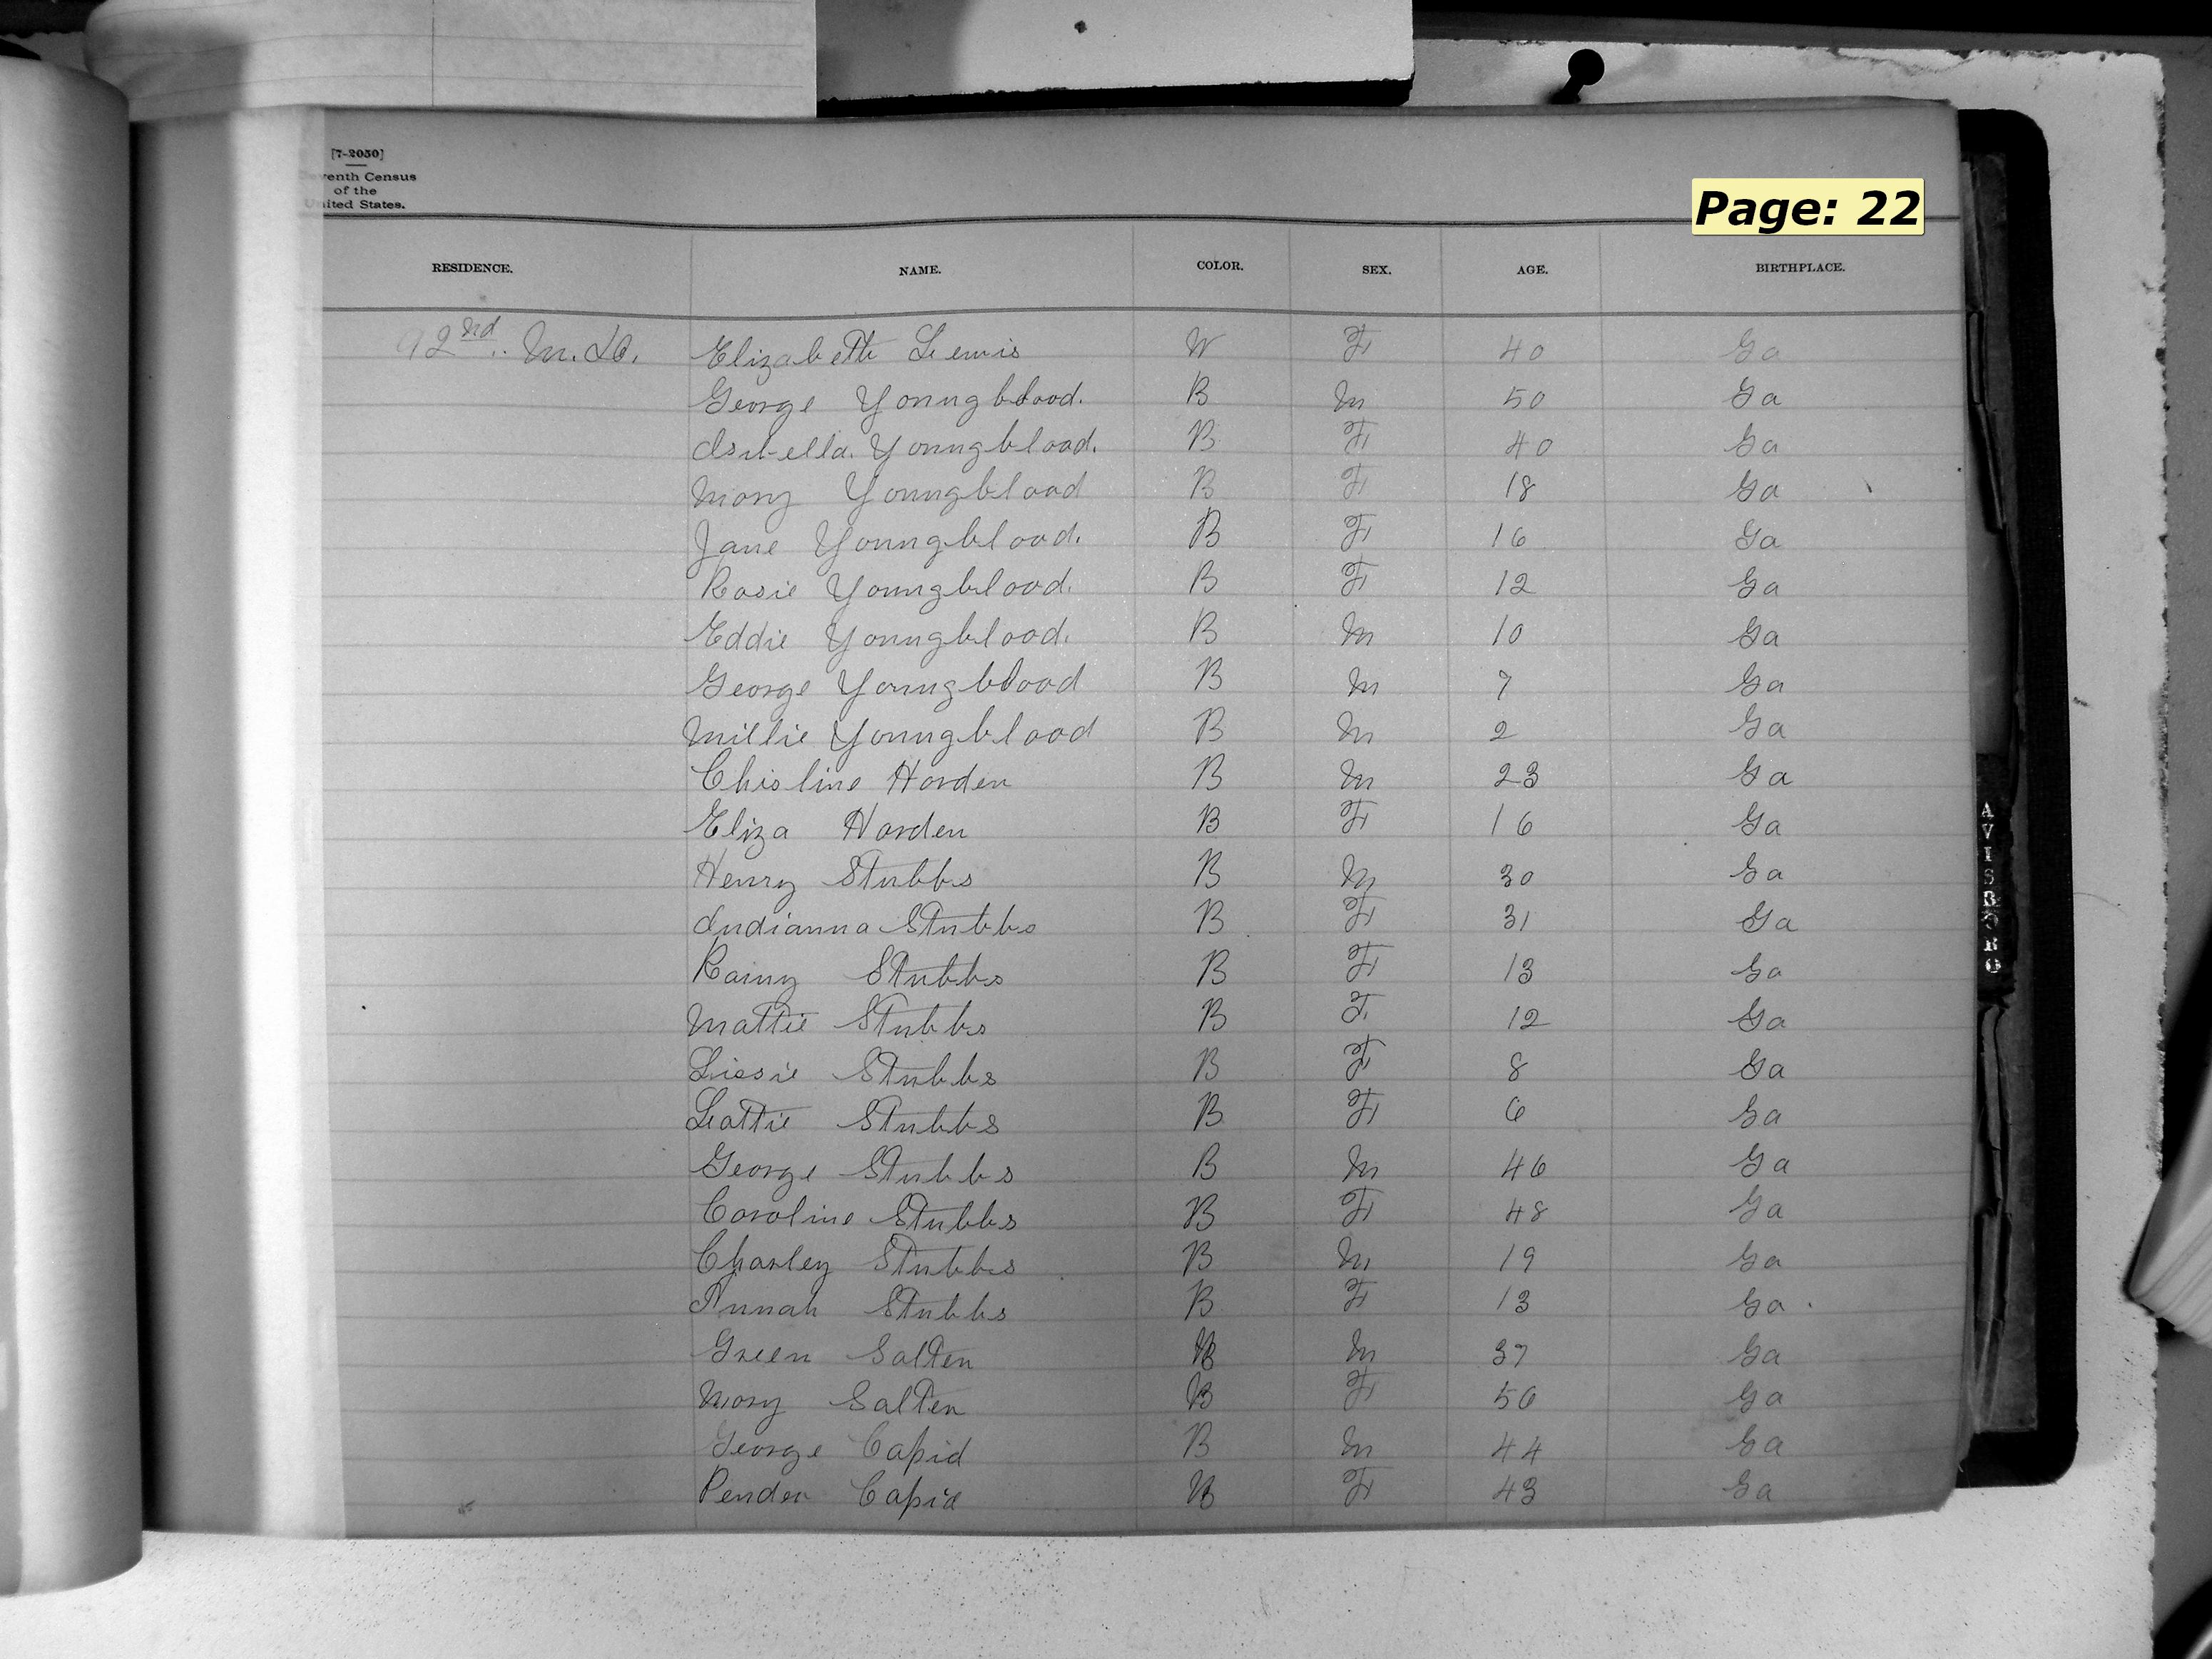 [7-2050]
venth Census
of the
United States.
Page: 22
RESIDENCE. NAME. COLOR. SEX. AGE. BIRTHPLACE.
92nd M. Elizabeth Lewis W F 40 Ga
George Youngblood. B M 50 Ga
Youngblood. B F 40 Ga
Mary Youngblood B F 18 Ga
Jane Youngblood. B F 16 Ga
Rosie Youngblood. B F 12 Ga
Eddie Youngblood. B M 10 Ga
George Youngblood B M 7 Ga
Millie Youngblood B M 2 Ga
Chisline Harden B M 23 Ga
Eliza Harden B F 16 Ga
Henry Stubbs B M 30 Ga
Indianna Stubbs B F 31 Ga
Rainy Stubbs B F 13 Ga
Mattie Stubbs B F 12 Ga
Lissie Stubbs B F 8 Ga
Lottie Stubbs B F 6 Ga
George Stubbs B M 46 Ga
Caroline Stubbs B F 48 Ga
Charley Stubbs B M 19 Ga
Annah Stubbs B F 13 Ga
Green Salten B M 37 Ga
Mary Salten B F 56 Ga
George Capid B M 44 Ga
Pender Capid B F 43 Ga
AVISBORO